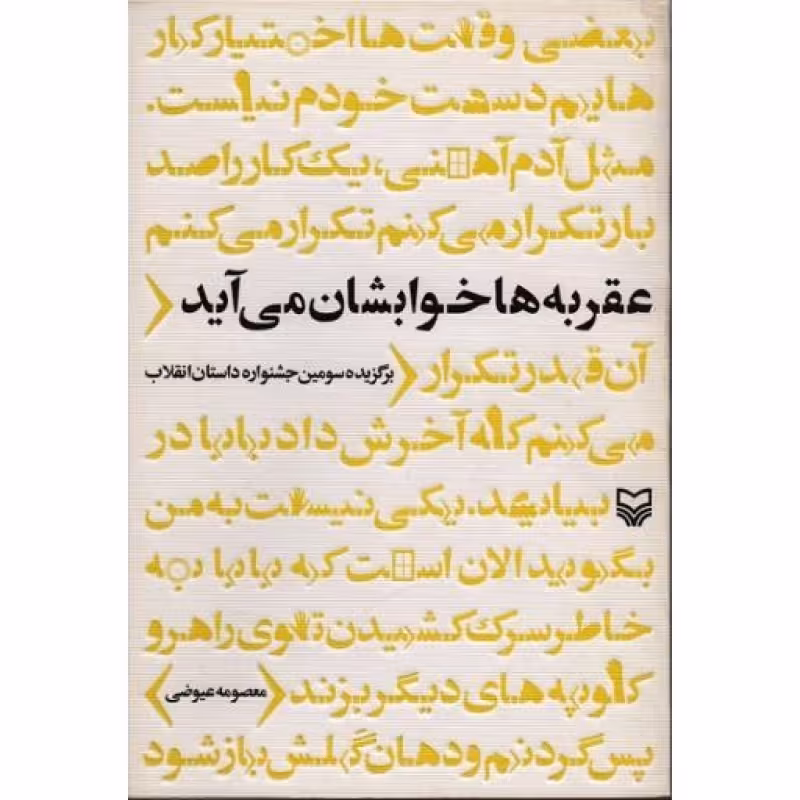 بعضی وقت ها اختیار کار
هایم دست خودم نیست.
مثل آدم آهنی، یک کار را صد
بار تکرار می کنم تکرار می کنم
عقربه ها خوابشان می آید
آن قدر تکرار
برگزیده سومین جشنواره داستان انقلاب
می کنم که آخرش داد بابا در
بیاید. یکی نیست به من
بگوید الان است که بابا به
خاطر سرک کشیدن توی راهرو
کوپه های دیگر بزند
معصومه عیوضی
پس گردنم و دهان گلش باز شود